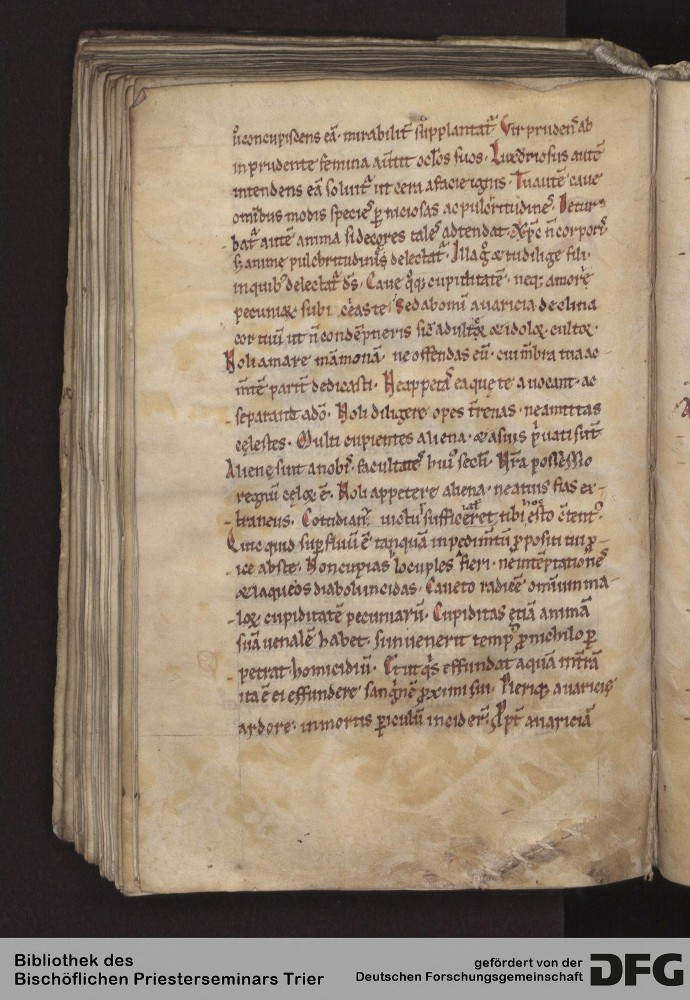 ñ concupiscens eā. mirabilit̄ supplantat̄. Vir prudens ab
inprudente femina auertit oclōs suos. Luxoriosus autē
intendens eā soluit̄ ut cera a facie ignis. Tu autē caue
omibus modis species p̱niciosas ac pulcritudines. Detur-
bat̄ autē anima si decores tales adtendat. Xp̄c ñ corporis
s; anime pulchritudinis delectat̄. Illa g̊ & tu dilige fili.
in quib; delectat̄ dс̄. Caue q̊q; cupiditatē. neq; amorē
pecuniaꝝ subi ceaste. Sed ab omi auaricia declina
cor tuū ut ñ condēpneris sic̄ adultoꝝ & idoloꝝ cultoꝝ.
Noli amare mamonā. ne offendas eū. cui mēbra tua ac
mentē parit̄ dedicasti. Ne appetas ea quę te auocant. ac
separant a dō. Noli diligere opes t̄renas. ne amittas
cęlestes. Multi cupientes aliena. & a suis p̄uati sunt
Alienę sunt a nobis facultates huius sc̄li. Nr̄a possessio
regnū cęloꝝ ē. Noli appetere aliena. ne a tuis fias ex-
traneus. Cotidian; uictus sufficeret tibi esto c̄tent;.
Et quicquid sup̱fluū ē tanquā inpedimtū p̱positi tui p̱-
ice abs te. Non cupias locuples fieri. ne in tēptationes
& laqueos diaboli incidas. Caueto radicē omnium ma-
loꝝ cupiditatē pecuniarū. Cupiditas etiā animā
suā uenalē habet. si inuenerit temp; p̱ nichilo p̱
petrat homicidiū. Et ut q̇s effundat aquā in t̄rā
ita ē ei effundere sanguinē p̱ximi sui. Pleriq; auaricię
ardore. in mortis p̱iculū incider̄. Ppt̄ auariciā
Bibliothek des
Bischöflichen Priesterseminars Trier
gefördert von der
Deutschen Forschungsgemeinschaft
DFG